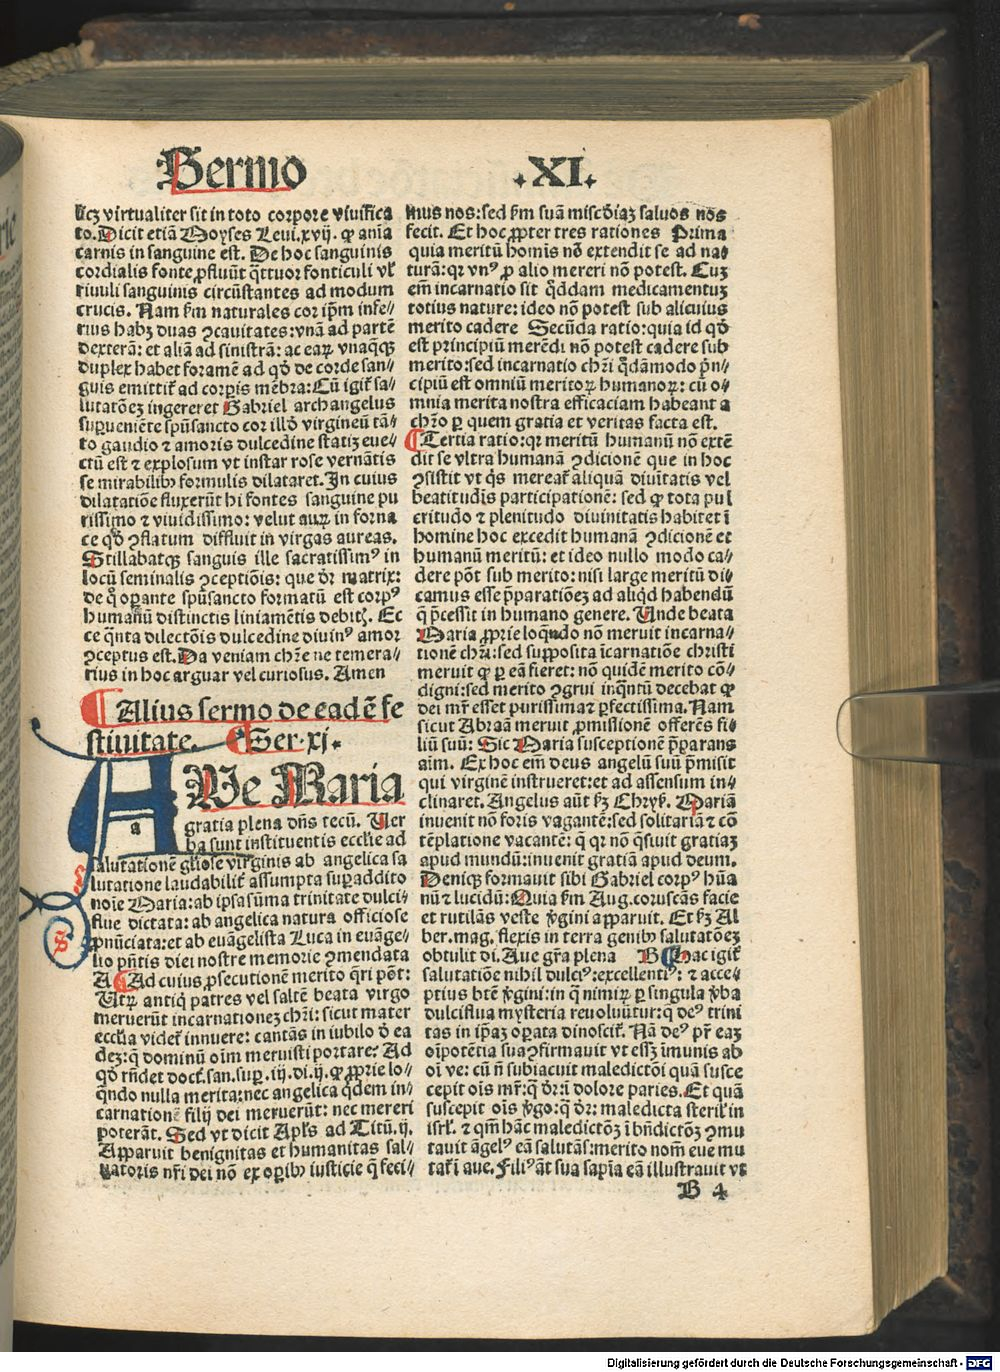 Sermo .XI.
licꝫ virtualiter sit in toto corpore viuifica
to. Dicit etiã Moyses Leui.xvij. ꝙ aĩa
carnis in sanguine est. De hoc sanguinis
cordialis fonte ꝓfluũt q̃ttuor fonticuli vl̃
riuuli sanguinis circũstantes ad modum
crucis. Nam ẜm naturales cor ip̃m infe⸗
rius habꝫ duas ꝯcauitates: vnã ad partẽ
dexterã: et aliã ad sinistrã: ac eaꝝ vnaq̃qꝫ
duplex habet foramẽ ad qđ de corde san⸗
guis emittit̃ ad corꝑis mẽbra: Cũ igit̃ sa⸗
lutatõeꝫ ingereret Gabriel archangelus
suꝑueniẽte sp̃usancto cor illđ virgineũ tã⸗
to gaudio ⁊ amoris dulcedine statiꝫ eue⸗
ctũ est ⁊ explosum vt instar rose vernãtis
se mirabilibꝰ formulis dilataret. In cuius
dilatatiõe fluxerũt hi fontes sanguine pu
rissimo ⁊ viuidissimo: velut auꝝ in forna
ce qđ ꝯflatum diffluit in virgas aureas.
Stillabatqꝫ sanguis ille sacratissimꝰ in
locũ seminalis ꝯceptiõis: que dr̃ matrix:
de q̃ oꝑante sp̃usancto formatũ est corpꝰ
humanũ distinctis liniamẽtis debitꝭ. Ec
ce q̃nta dilectõis dulcedine diuinꝰ amor
ꝯceptus est. Da veniam chr̃e ne temera⸗
rius in hoc arguar vel curiosus. Amen
Alius sermo de eadẽ fe
stiuitate. Ser.xj.
AVe Maria
a
gratia plena dñs tecũ. Ver
ba sunt instituentis ecclie ad
salutationẽ gliose virginis ab angelica sa
lutatione laudabilit̃ assumpta suꝑaddito
noĩe Maria: ab ipsa sũma trinitate dulci⸗
flue dictata: ab angelica natura officiose
ꝓnũciata: et ab euãgelista Luca in euãge⸗
lio pñtis diei nostre memorie ꝯmendata
A Ad cuius ꝓsecutionẽ merito q̃ri põt:
Utꝝ antiq̃ patres vel saltẽ beata virgo
meruerũt incarnationeꝫ chr̃i: sicut mater
ecclia videt̃ innuere: cantãs in iubilo đ ea
deꝫ: q̃ dominũ oĩm meruisti portare? Ad
qđ rñdet doct̃.san.suꝑ.iij.di.ij. ꝙ ꝓprie lo⸗
q̃ndo nulla merita: nec angelica q̃dem in⸗
carnationẽ filij dei meruerũt: nec mereri
poterãt. Sed vt dicit Apl̃s ad Titũ.ij.
Apparuit benignitas et humanitas sal⸗
uatoris nr̃i dei nõ ex oꝑibꝰ iusticie q̃ feci⸗
mus nos: sed ẜm suã misc̃diaꝫ saluos nos
fecit. Et hoc ꝓpter tres rationes Prima
quia meritũ homĩs nõ extendit se ad na⸗
turã: qꝛ vnꝰ ꝓ alio mereri nõ potest. Cuꝫ
em̃ incarnatio sit q̃ddam medicamentuꝫ
totius nature: ideo nõ potest sub alicuius
merito cadere Secũda ratio: quia id qđ
est principiũ merẽdi nõ potest cadere sub
merito: sed incarnatio chr̃i q̃dãmodo p̃n⸗
cipiũ est omniũ meritoꝝ humanoꝝ: cũ o⸗
mnia merita nostra efficaciam habeant a
chr̃o ꝑ quem gratia et veritas facta est.
Tertia ratio: qꝛ meritũ humanũ nõ extẽ
dit se vltra humanã ꝯdicionẽ que in hoc
ꝯsistit vt q̃s mereat̃ aliquã diuitatis vel
beatitudis participationẽ: sed ꝙ tota pul
critudo ⁊ plenitudo diuinitatis habitet ĩ
homine hoc excedit humanã ꝯdicionẽ et
humanũ meritũ: et ideo nullo modo ca⸗
dere põt sub merito: nisi large meritũ di⸗
camus esse p̃paratiõeꝫ ad aliqđ habendũ
q̃ p̃cessit in humano genere. Unde beata
Maria ꝓprie loq̃ndo nõ meruit incarna⸗
tionẽ chr̃i: sed supposita ĩcarnatiõe christi
meruit ꝙ ꝑ eã fieret: nõ quidẽ merito cõ⸗
digni: sed merito ꝯgrui inq̃ntũ decebat ꝙ
dei mr̃ esset purissima ⁊ ꝑfectissima. Nam
sicut Abraã meruit ꝓmissionẽ offerẽs fi⸗
liũ suũ: Sic Maria susceptionẽ p̃parans
aĩm. Ex hoc em̃ deus angelũ suũ p̃misit
qui virginẽ instrueret: et ad assensum in⸗
clinaret. Angelus aũt ẜꝫ Chrys. Mariã
inuenit nõ foris vagantẽ: sed solitariã ⁊ cõ
tẽplatione vacantẽ: q̃ qꝛ nõ q̃siuit gratiaꝫ
apud mundũ: inuenit gratiã apud deum.
Deniqꝫ formauit sibi Gabriel corpꝰ hũa
nũ ⁊ lucidũ: Quia ẜm Aug. coruscãs facie
et rutilãs veste v̾gini apparuit. Et ẜꝫ Al
ber.mag. flexis in terra genibꝰ salutatõeꝫ
obtulit di. Aue gr̃a plena B Hac igit̃
salutatiõe nihil dulciꝰ: excellentiꝰ: ⁊ acce⸗
ptius btẽ v̾gini: in q̃ nimiꝝ ꝑ singula v̾ba
dulciflua mysteria reuoluũtur: q̃ deꝰ trini
tas in ip̃aꝫ oꝑata dinoscit̃. Nã deꝰ pr̃ eaꝫ
oĩpotẽtia sua ꝯfirmauit vt essꝫ ĩmunis ab
oĩ ve: cũ ñ subiacuit maledictõi quã susce
cepit oĩs mr̃: q̃ dr̃: ĩ dolore paries. Et quã
suscepit oĩs v̾go: q̃ dr̃: maledicta steril̾ in
isrl̾. ⁊ qm̃ hãc maledictõꝫ ĩ bñdictõꝫ ꝯmu
tauit ãgelꝰ eã salutãs: merito nom̃ eue mu
tat̃ ĩ aue. Filiꝰ aũt sua sapĩa eã illustrauit vt
B 4
Digitalisierung gefördert durch die Deutsche Forschungsgemeinschaft - DFG